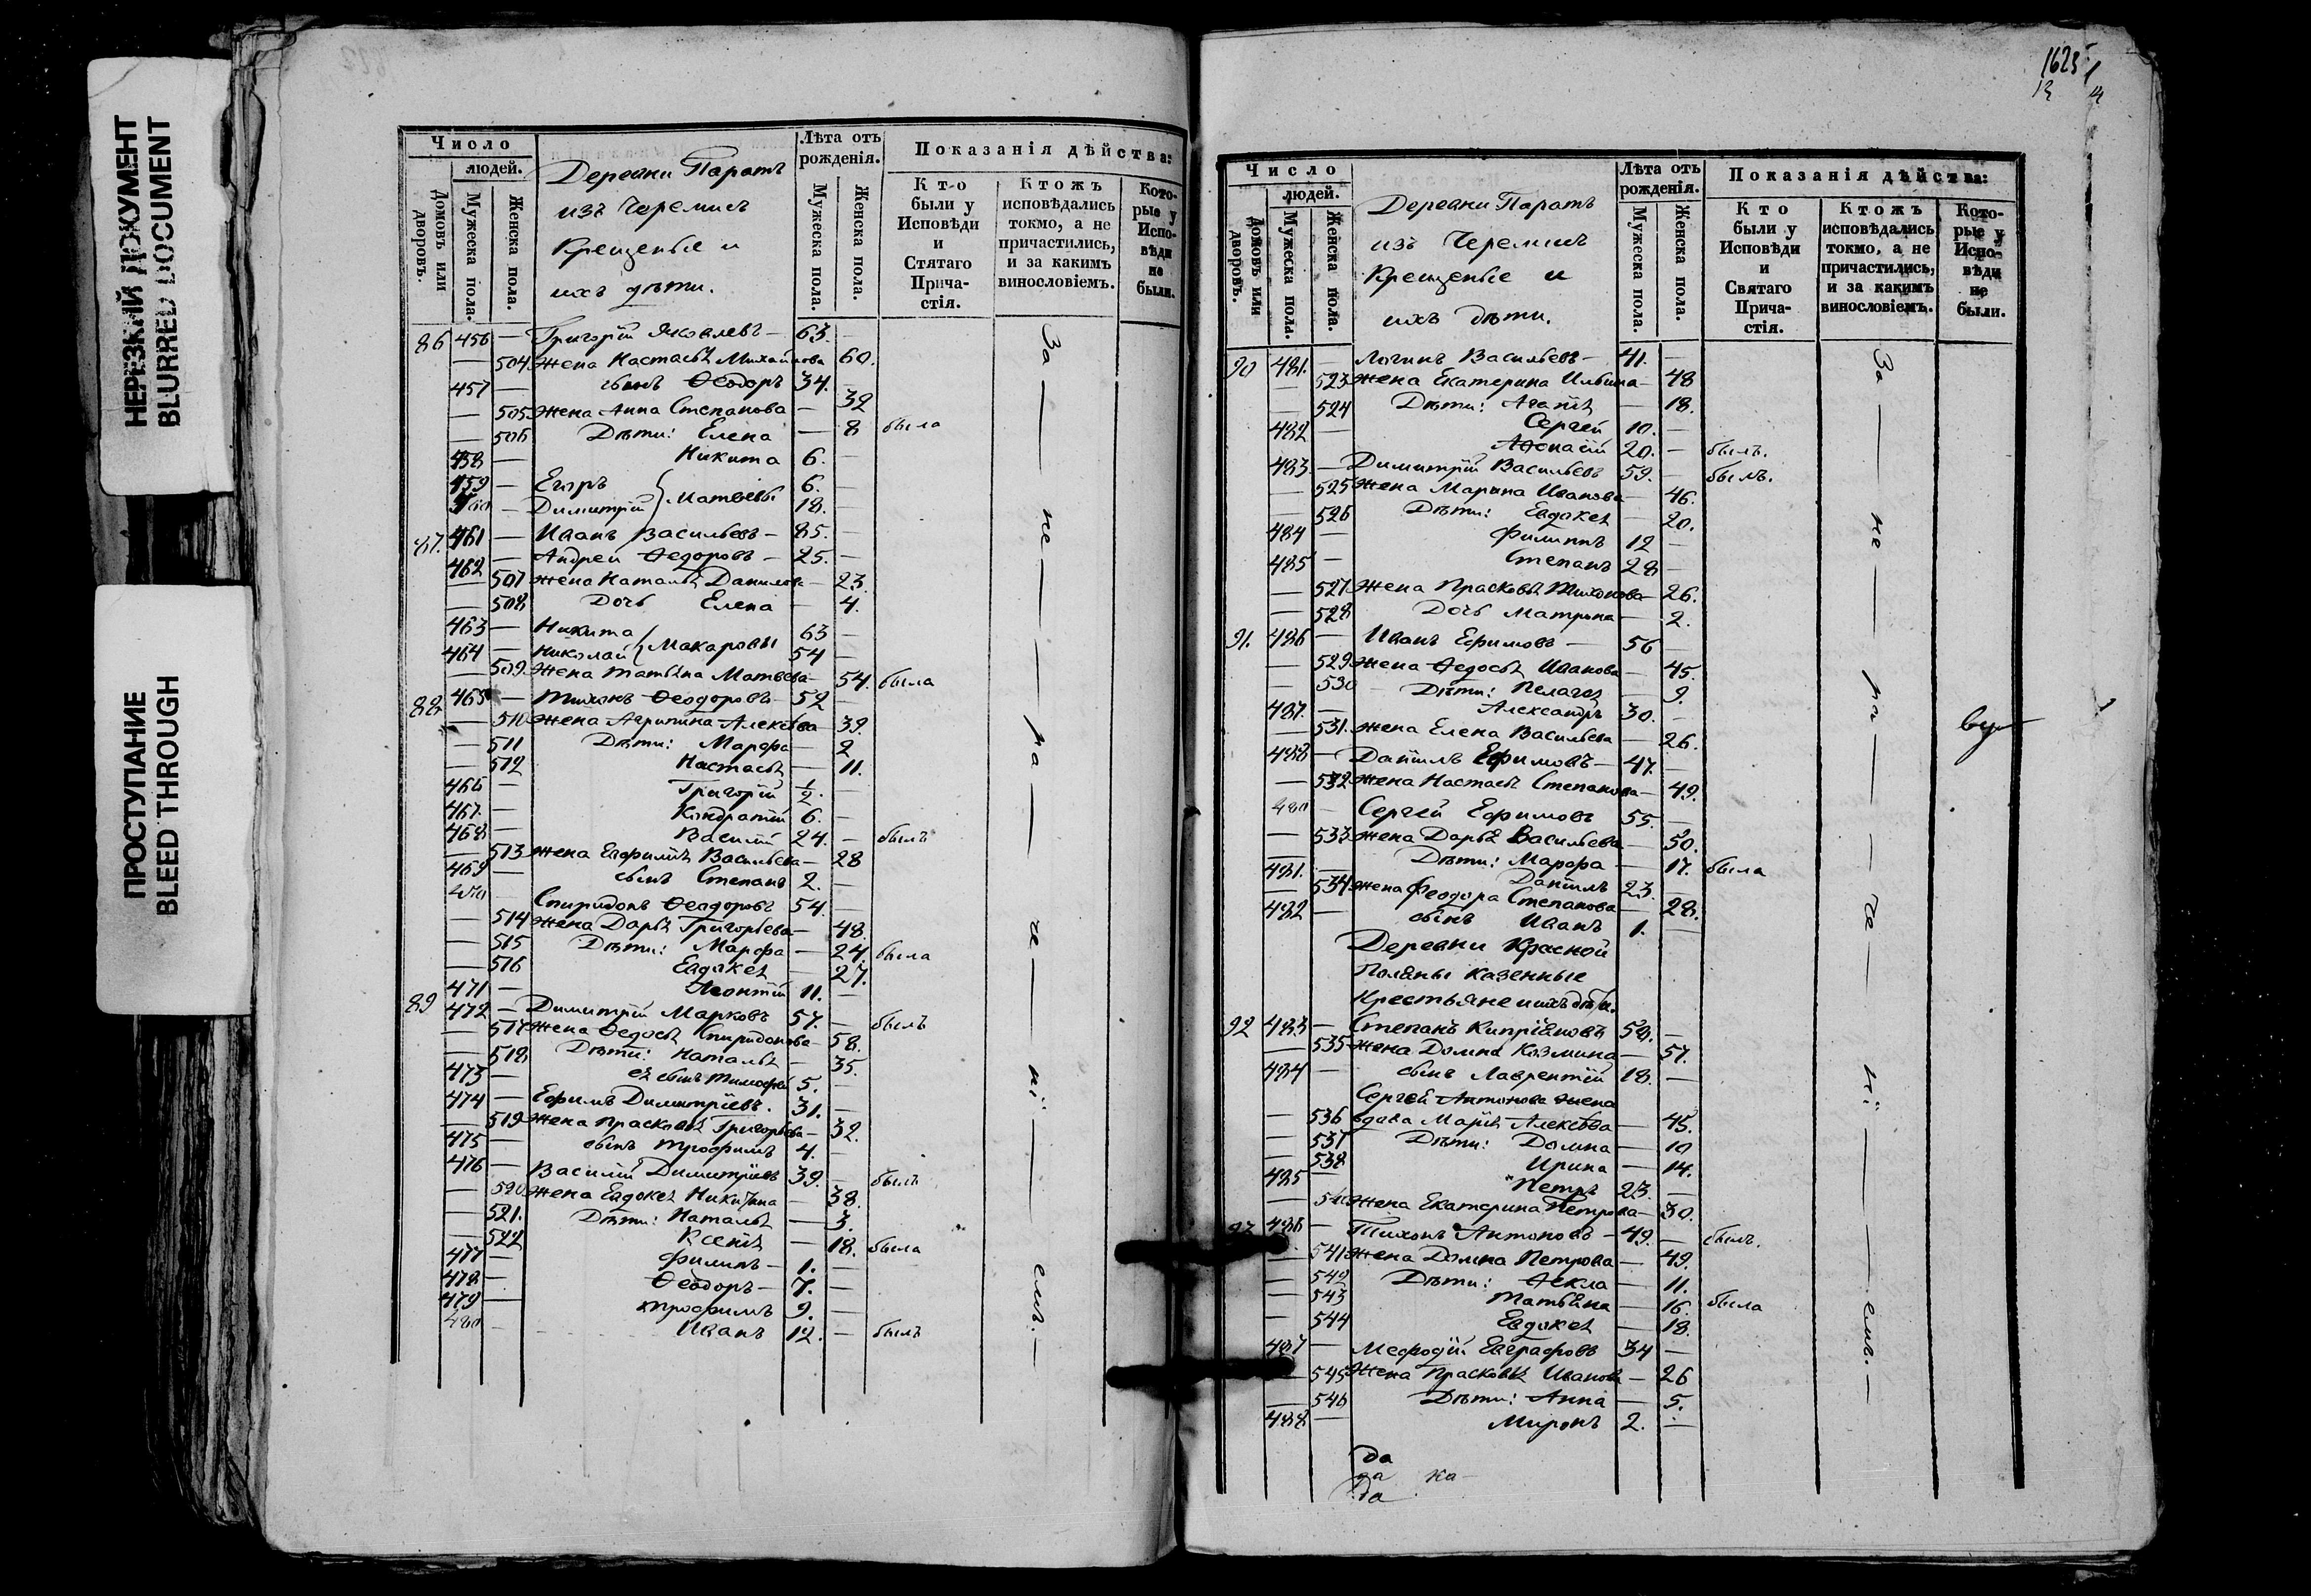 НЕРЕЗКИЙ ДОКУМЕНТ
BLURRED DOCUMENT
ПРОСТУПАНИЕ
BLEED THROUGH
Число
людей.
Домовъ или дворовъ.
Мужеска пола.
Женска пола.
Деревни Паратъ
изъ Черемисъ
Крещеные и
ихъ дѣти.
Лѣта отъ рожденія.
Мужеска пола.
Женска пола.
Показанія дѣйства:
Кто были у Исповѣди и Стятаго Прича-стія.
Ктожъ исповѣдались токмо, а не причастились, и за какимъ винословіемъ.
Кото-рые у Испо-вѣди не были.
За не ра че ні емъ.
86 456 — Григорій Яковлевъ — 63. —
— 504. Жена Настасья Михайлова 60.
457 — сынъ Ѳеодоръ 34. —
— 505. Жена Анна Степанова — 32
— 506 Дѣти: Елена — 8 была
458 — Никита 6. —
459 — Егоръ 6. —
Матвѣевы
460 — Димитрій 18. —
87. 461 — Иванъ Васильевъ — 85. —
462 — Андрей Ѳедоровъ — 25. —
— 507 Жена Наталья Данилова — 23.
— 508 Дочь Елена — 4.
463 — Никита 63 —
Макаровы
464 — Николай 54 —
— 509. Жена Татьяна Матвѣева — 54. была
88 465 — Тихонъ Ѳеодоровъ — 52 —
— 510 Жена Агрипина Алексѣева 39.
— 511 Дѣти: Марфа — 2
— 512 Настасья — 11.
466 — Григорій ½. —
467. — Кондратій 6. —
468 — Василій 24. — былъ
— 513 Жена Евфимія Васильева — 28
469 — сынъ Степанъ 2. —
470 Спиридонъ Ѳеодоровъ 54. —
— 514 Жена Дарья Григорьева — 48.
— 515 Дѣти: Марфа — 24 была
— 516 Евдокея — 27.
471 — Леонтій 11. —
89 472 — Димитрій Марковъ 57. — былъ
— 517 Жена Ѳедосья Спиридонова — 58.
— 518 Дѣти: Наталья — 35.
473 — ея сынъ Тимофей 5. —
474 — Ефимъ Димитріевъ. 31. —
— 519 Жена Прасковья Григорьева — 32.
475 — сынъ Трофимъ 4. —
476 — Василій Димитріевъ 39. — былъ
— 520 Жена Евдокея Никитина — 38.
— 521. Дѣти: Наталья — 3.
— 522 Ксенія — 18. была
477 — Филипъ — 1. —
478 — Ѳеодоръ — 7. —
479 — Трофимъ 9. —
480 — Иванъ 12. — былъ
1625
Число
людей.
Домовъ или дворовъ.
Мужеска пола.
Женска пола.
Деревни Паратъ
изъ Черемисъ
Крещеные и
ихъ дѣти.
Лѣта отъ рожденія.
Мужеска пола.
Женска пола.
Показанія дѣйства:
Кто были у Исповѣди и Святаго Прича-стія.
Ктожъ исповѣдались токмо, а не причастились, и за какимъ винословіемъ.
Кото-рые у Испо-вѣди не были.
За не ра че ні емъ.
90 481. — Логинъ Васильевъ — 41. —
— 523 Жена Екатерина Ильина — 48
— 524 Дѣти: Агапія — 18.
482 — Сергей 10. —
Аѳенасій 20. — былъ.
483 — Димитрій Васильевъ 59. — былъ.
— 525 Жена Марина Иванова — 46.
— 526 Дѣти: Евдокея — 20.
484 — Филиппъ 12 —
485 — Степанъ 28 —
— 527 Жена Прасковья Тихонова — 26.
— 528 Дочь Матрина — 2.
91. 486 — Иванъ Ефимовъ — 56 —
— 529 Жена Ѳедосья Иванова — 45.
— 530 Дѣти: Пелагея — 9.
487. — Александръ 30. —
— 531. Жена Елена Васильева — 26.
488 — Даніилъ Ефимовъ — 47. —
— 532 Жена Настасья Степанова — 49.
480 — Сергей Ефимовъ 55. —
— 533 Жена Дарья Васильева — 50.
— Дѣти: Марфа — 17. была
481. — Даніилъ 23. —
— 534 Жена Феодора Степанова — 28.
482 — сынъ Иванъ 1. —
Деревни Красной
Поляны казенные
Крестьяне и ихъ дѣти.
92 483 — Степанъ Кипріановъ 59. —
— 535 Жена Домна Козмина — 57.
484 — сынъ Лаврентій 18. —
Сергей Антонова жена
— 536 вдова Марія Алексѣева — 45.
— 537 Дѣти: Домна — 10
— 538 Ирина — 14.
485 — Петръ 23. —
— 540 Жена Екатерина Петрова — 30.
486 — Тихонъ Антоновъ — 49. — былъ.
— 541 Жена Домна Петрова — 49.
— 542 Дѣти: Ѳекла — 11.
— 543 Татьяна — 16. была
— 544 Евдокея — 18.
487 — Мефодій Евграфовъ 34 —
— 545 Жена Прасковья Иванова — 26
— 546 Дѣти: Анна — 5.
488 — Миронъ 2. —
да
да ка
да